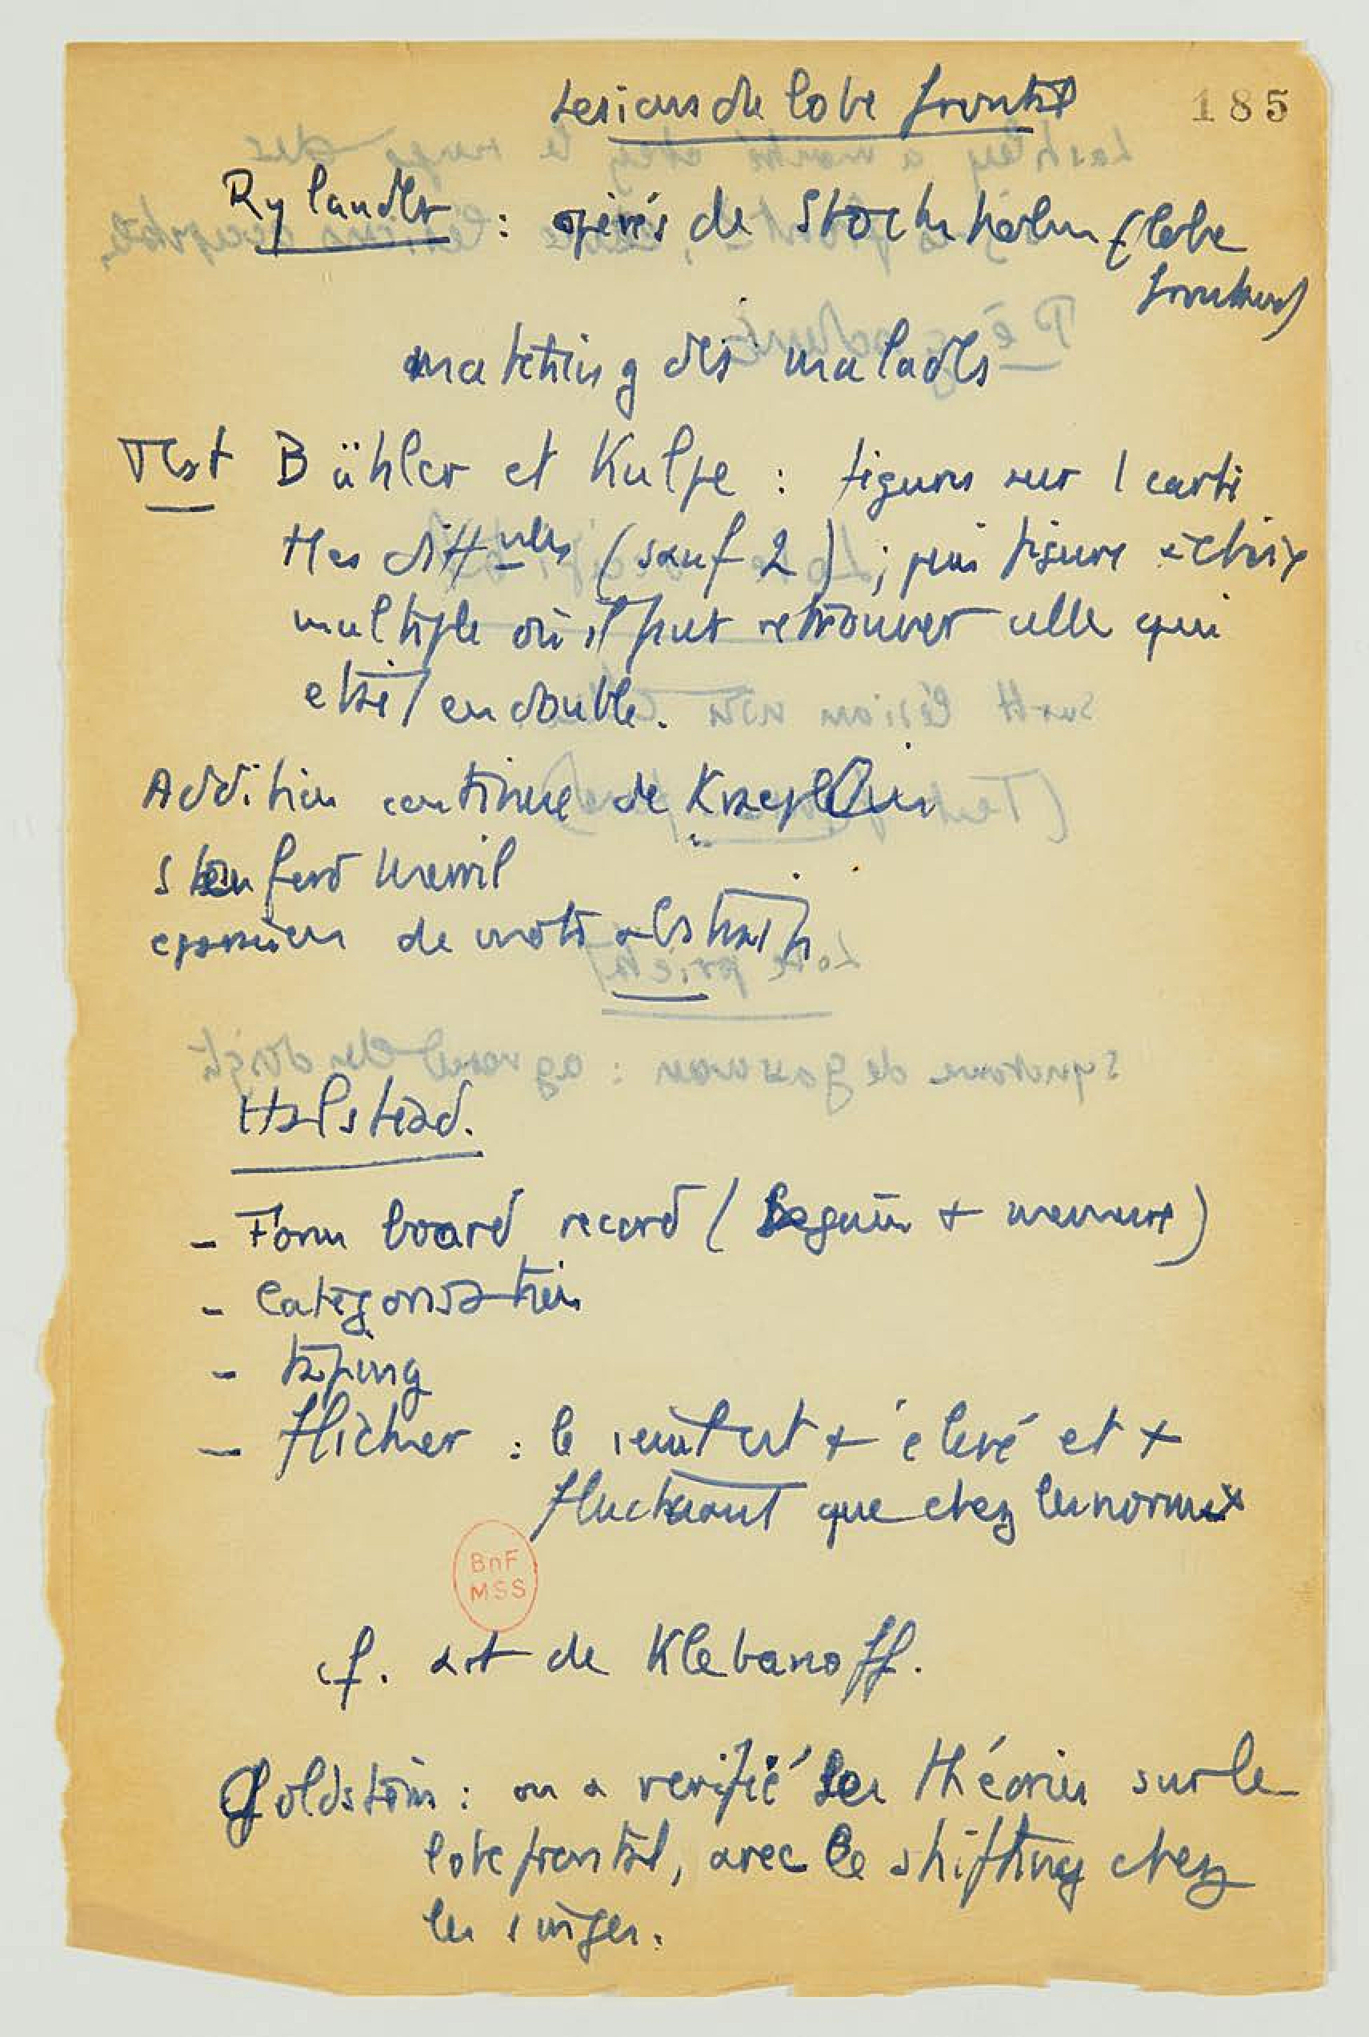 Lesions du lobe frontal
185
Rylander : opérés de Stockholm (lobe
frontaux)
matching des malades
Test Bühler et Kulpe : figures sur 1 carte
ttes diff^ntes (sauf 2) ; puis figure à choix
multiple où il faut retrouver celle qui
etait en double.
Addition continue de Kraepelin
Stanford Merril
de mots abstraits
Halstead.
- Form board record ( Seguin + mémoire)
- Categorisation
- taping
- flicker : le seuil est + élevé et +
fluctuant que chez les normaux
BnF
MSS
cf. art de Klebanoff.
Goldstein : on a verifié ses théories sur le
lobe frontal, avec le shifting chez
les singes.